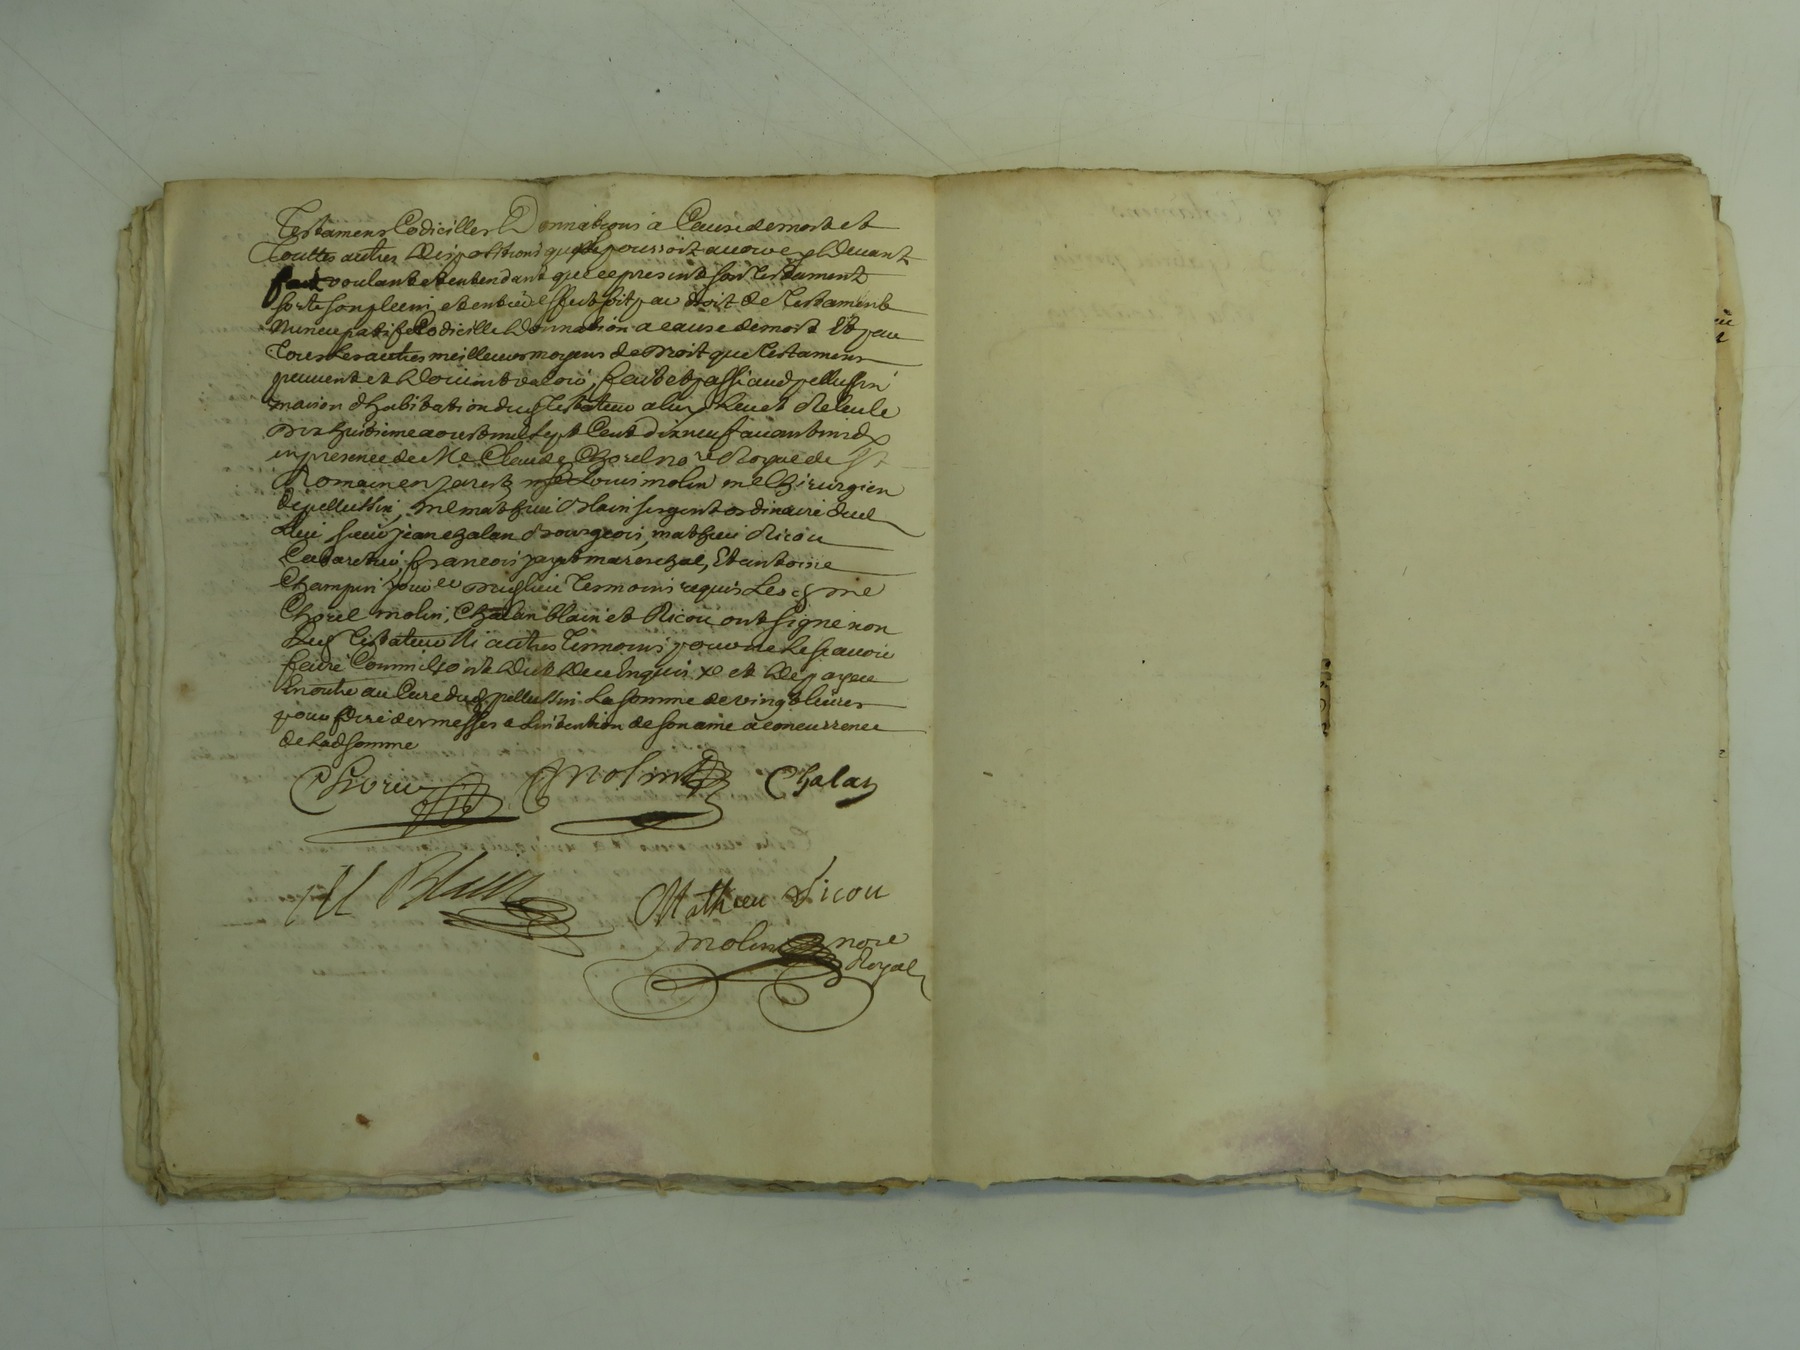 Testamens Codicilles Donnations a Cause de mort et
Touttes autres Dispositions quil pourroit avoir cy Devant
fait voulant et entendant que ce present son Testament
sorte son plein et entier effect soit par droit de Testament
Nuncupatif Codicille Donnation a cause de mort Et par
Tous les autres meilleurs moyens de droit que Testamens
peuvent et Doivent valoir, fait et passé aud pellussin
maison d'habitation dud Testateur a luy Leue et Releule
dix huitieme aoust mil sept Cent dix neuf avant midy
en presence de Me Claude Chorel nore Royal de St
Romain en Jarest me Louis molin me Chirurgien
de pellussin, me mathieu Blain sergent ordinaire dud
Lieu sieur jean chalan Bourgeois, mathieu Ricou
Cabaretier, francois payet mareschal, Et antoine
Champin dud lieu Tesmoins requis Les d me
Chorel molin, Chalan blain et Ricou ont signé non
Led Testateur Ni autres Tesmoins pour ne le scavoir
faire Comm Ils ont Dit De ce Enquis x et De payer
En outre au Curé dud pellussin La somme de vingt livres
pour dire des messes a Lintention de son ame a concurrence
de lad somme
Chorel Molin Chalan
M Blain Mathieu Ricou
Molin nore
Royal